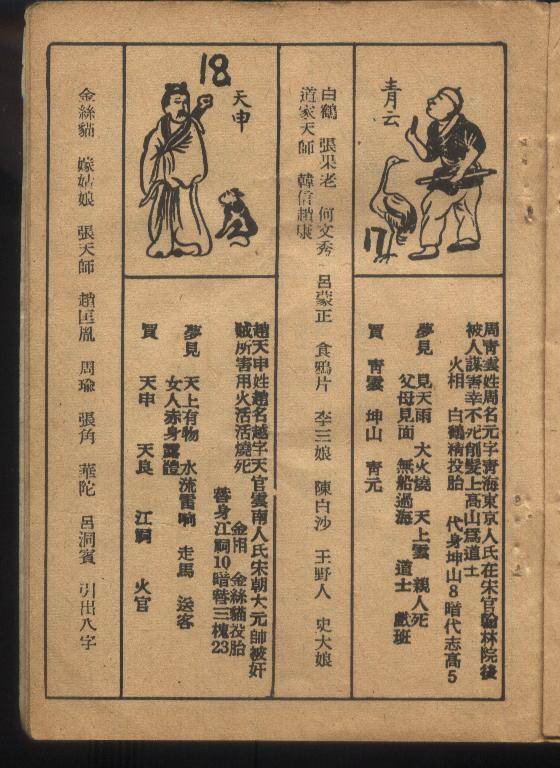 青云
17
周青雲姓周名元字青海東京人氏在宋官翰林院後
被人謀害幸不死削髮上高山爲道士
火相 白鶴精投胎 代身坤山8暗代志高5
夢見 見天雨 大火燒 天上雲 親人死
父母見面 無船過海 道士 戲班
買 青雲 坤山 青元
白鶴 張果老 何文秀 呂蒙正 食鴉片 李三娘 陳白沙 王野人 史大娘
道家天師 韓信趙康
18
天申
趙天申姓趙名越字天官雲南人氏宋朝大元帥被奸
賊所害用火活活燒死
金相 金絲貓投胎
替身江祠10暗替三槐23
夢見 天上有物 水流雷响 走馬 送客
女人赤身露體
買 天申 天良 江祠 火官
金絲貓 嫁姑娘 張天師 趙匡胤 周瑜 張角 華陀 呂洞賓 引出八字